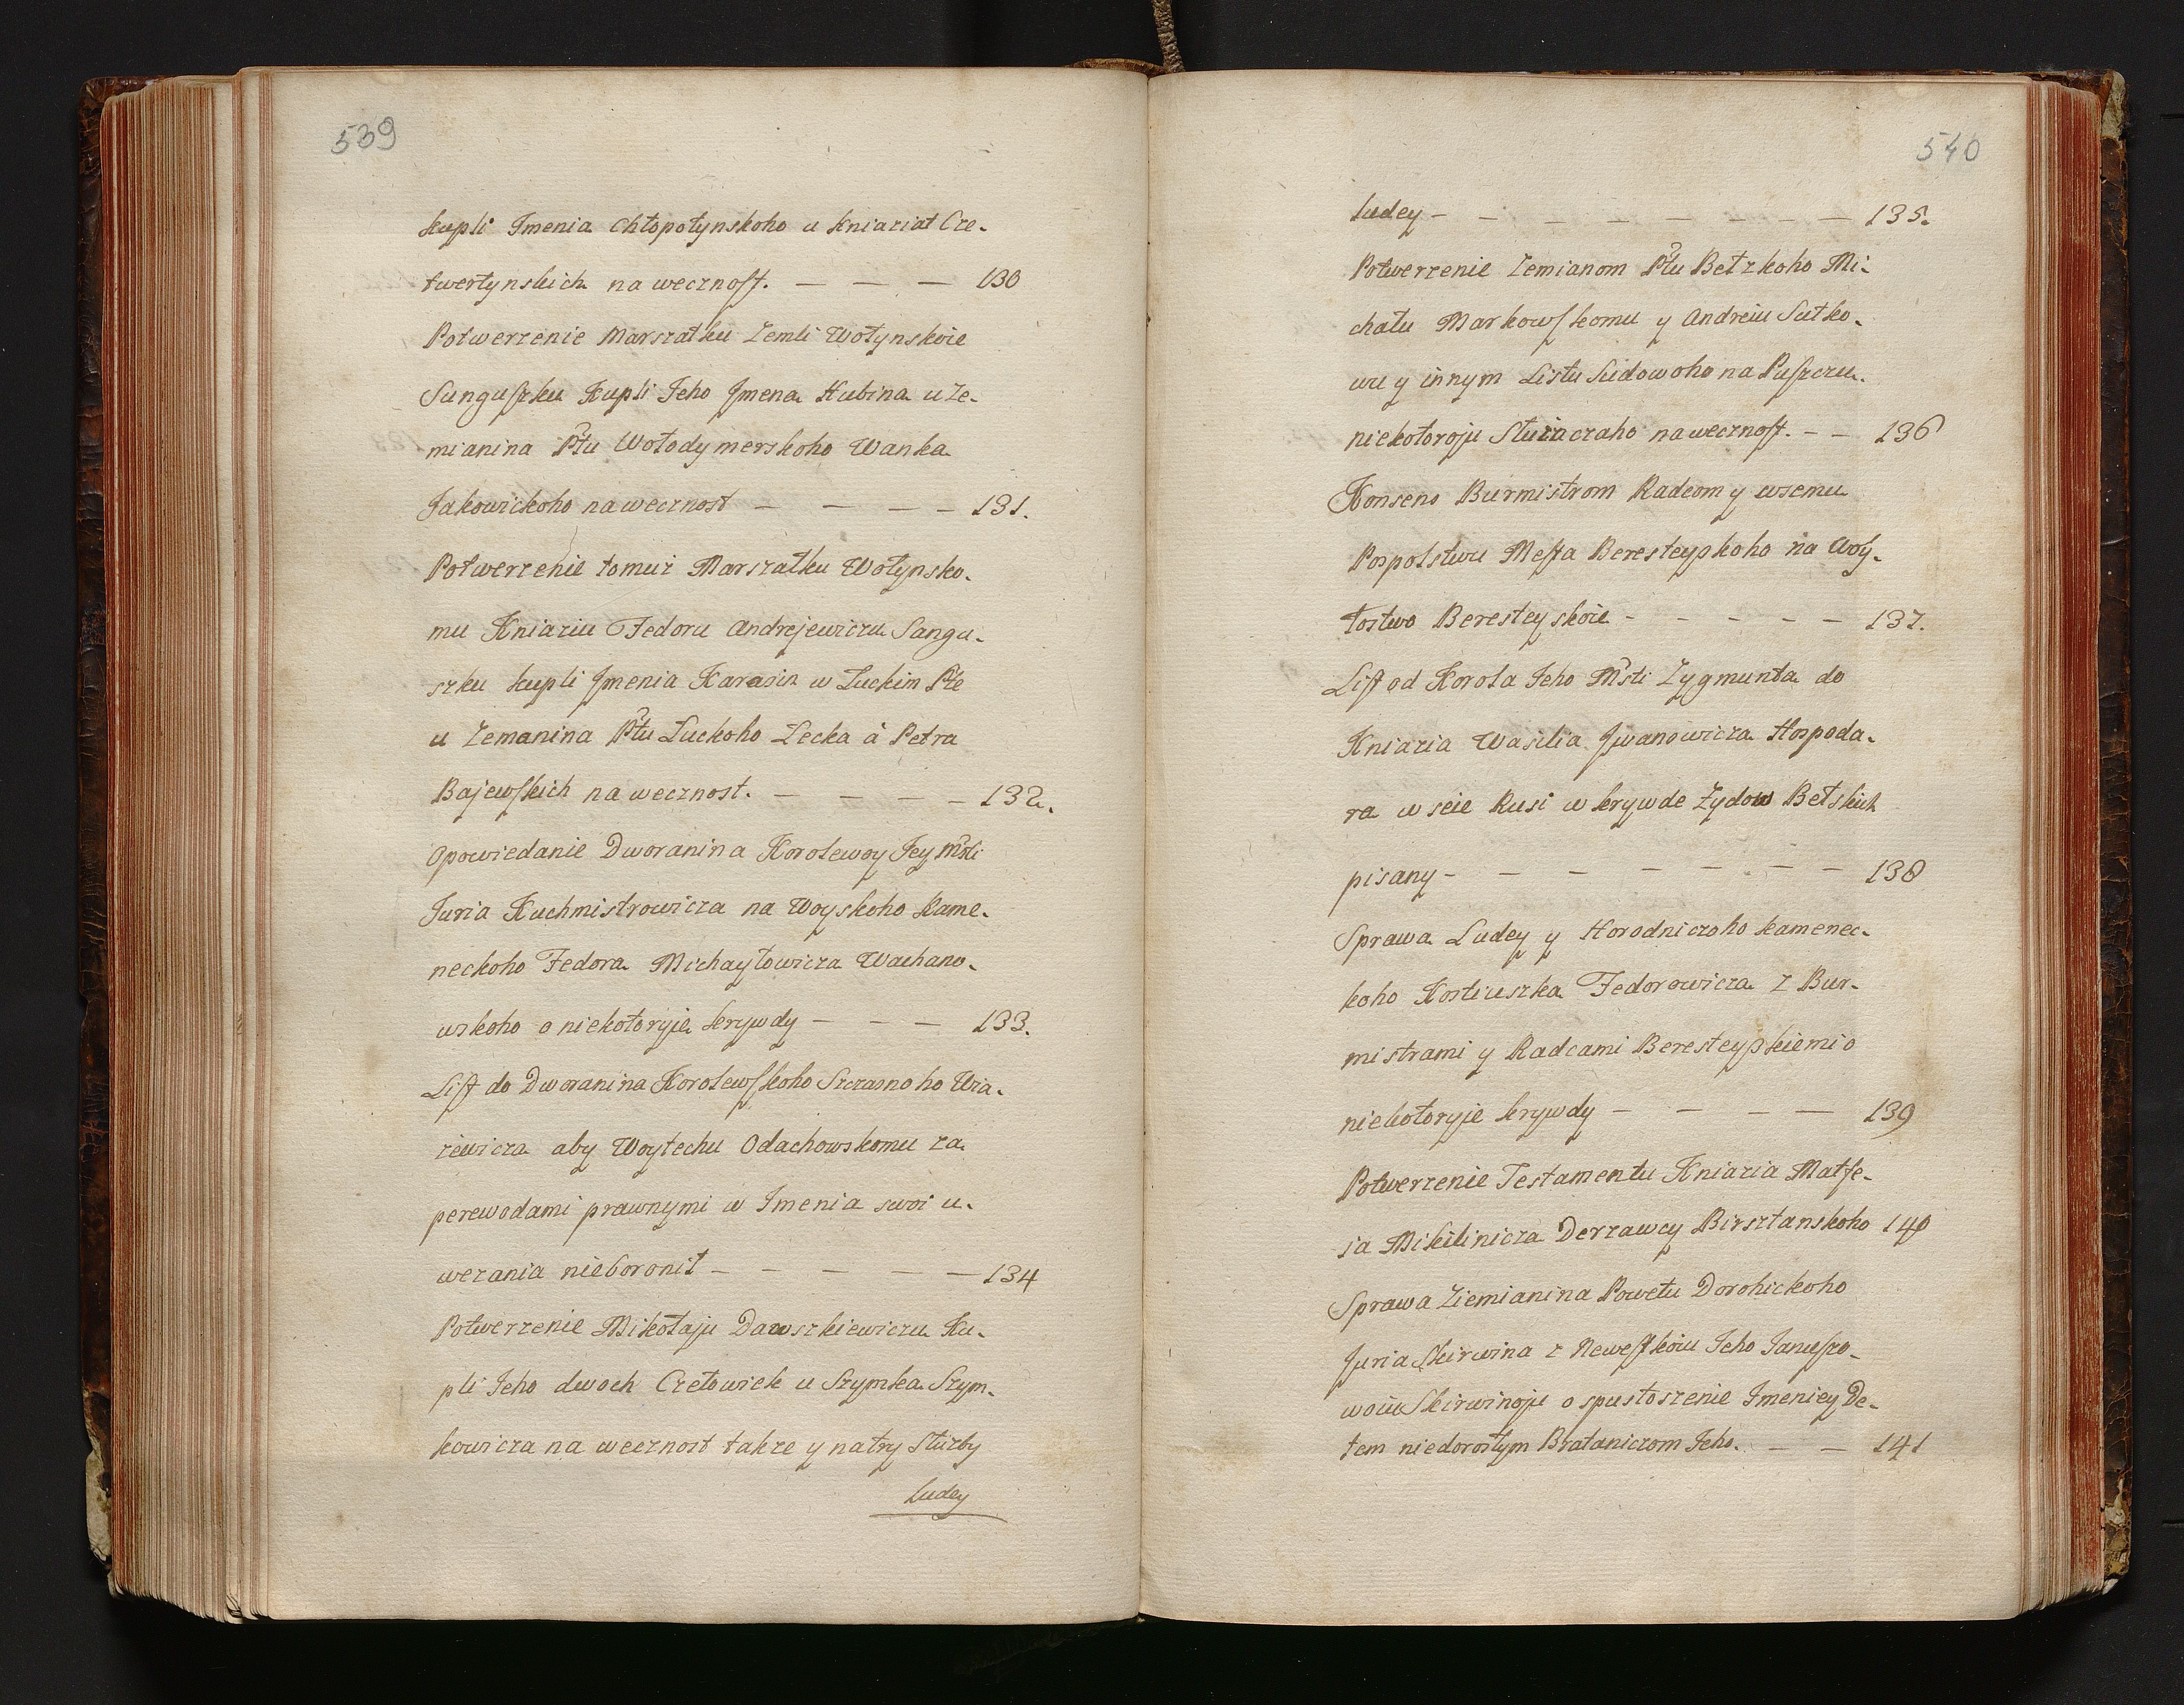 539
kupli Imenia Chłopotynskoho u Kniaziat Cze-
twertynskich na wecznost. — — — 130
Potwerzenie Marszałku Zemli Wołynskoie
Sunguszku Kupli Jeho Imena Hubina u Ze-
mianina Płtu Wołodymerskoho Wanka
Jakowickoho na wecznost — — — — 131.
Potwerzenie tomuż Marszałku Wołynsko-
mu Kniaziu Fedoru Andrejewiczu Sangu-
szku kupli Imenia Karasin w Łuckim Płe
u Zemanina Płtu Łuckoho Lecka à Petra
Bajewskich na wecznost. — — — — 132.
Opowiedanie Dworanina Korolewoy Jey Mśti
Juria Kuchmistrowicza na Woyskoho Kame-
neckoho Fedora Michayłowicza
o niekotoryje krywdy — — — 133.
List do Dworanina Korolewskoho Szczasnoho
aby Woytechu Odachowskomu za
perewodami prawnymi w Imenia swoi u-
wezania nieboronit — — — — — 134
Potwerzenie Mikołaju Dawszkiewiczu Ku-
pli Jeho dwoch Czełowiek u Szymka Szym-
kowicza na wecznost takze y na try Służby
Ludey
540
ludey — — — — — — — 135.
Potwerzenie Zemianom Płtu Bełzkoho Mi-
chału Markowskomu y Andreiu Sutko-
wu y innym Listu Sudowoho na Puszczu
niekotoroju na wecznost. — — 136
Konsens Burmistrom Radcom y wsemu
Pospolstwu Mesta Beresteyskoho na Woy-
tostwo Beresteyskoie — — — — — 137.
List od Korola Jeho Mśti Zygmunta do
Kniazia Wasilia Iwanowicza Hospoda-
ra w seie Rusi w krywde Zydow Bełskich
pisany — — — — — — — 138
Sprawa Ludey y Horodniczoho kamenec-
koho Kostiuszka Fedorowicza z Bur-
mistrami y Radcami Beresteyskiemi o
niekotoryje krywdy — — — — 139
Potwerzenie Testamentu Kniazia Matfe-
ja Mikitinicza Derzawcy Birsztanskoho 140
Sprawa Ziemianina Powetu Dorohickoho
Juria Skirwina z Newestkoiu Jeho Januszo-
woiu Skirwinoju o spustoszenie Imeniey De-
tem niedorostym Brataniczom Jeho. — — 141